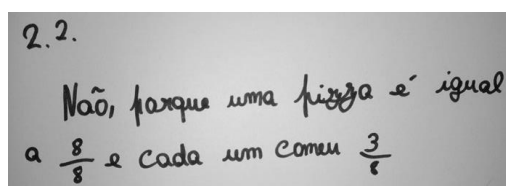 2.2.
Não, porque uma pizza é igual
a 8/8 e cada um comeu 3/8